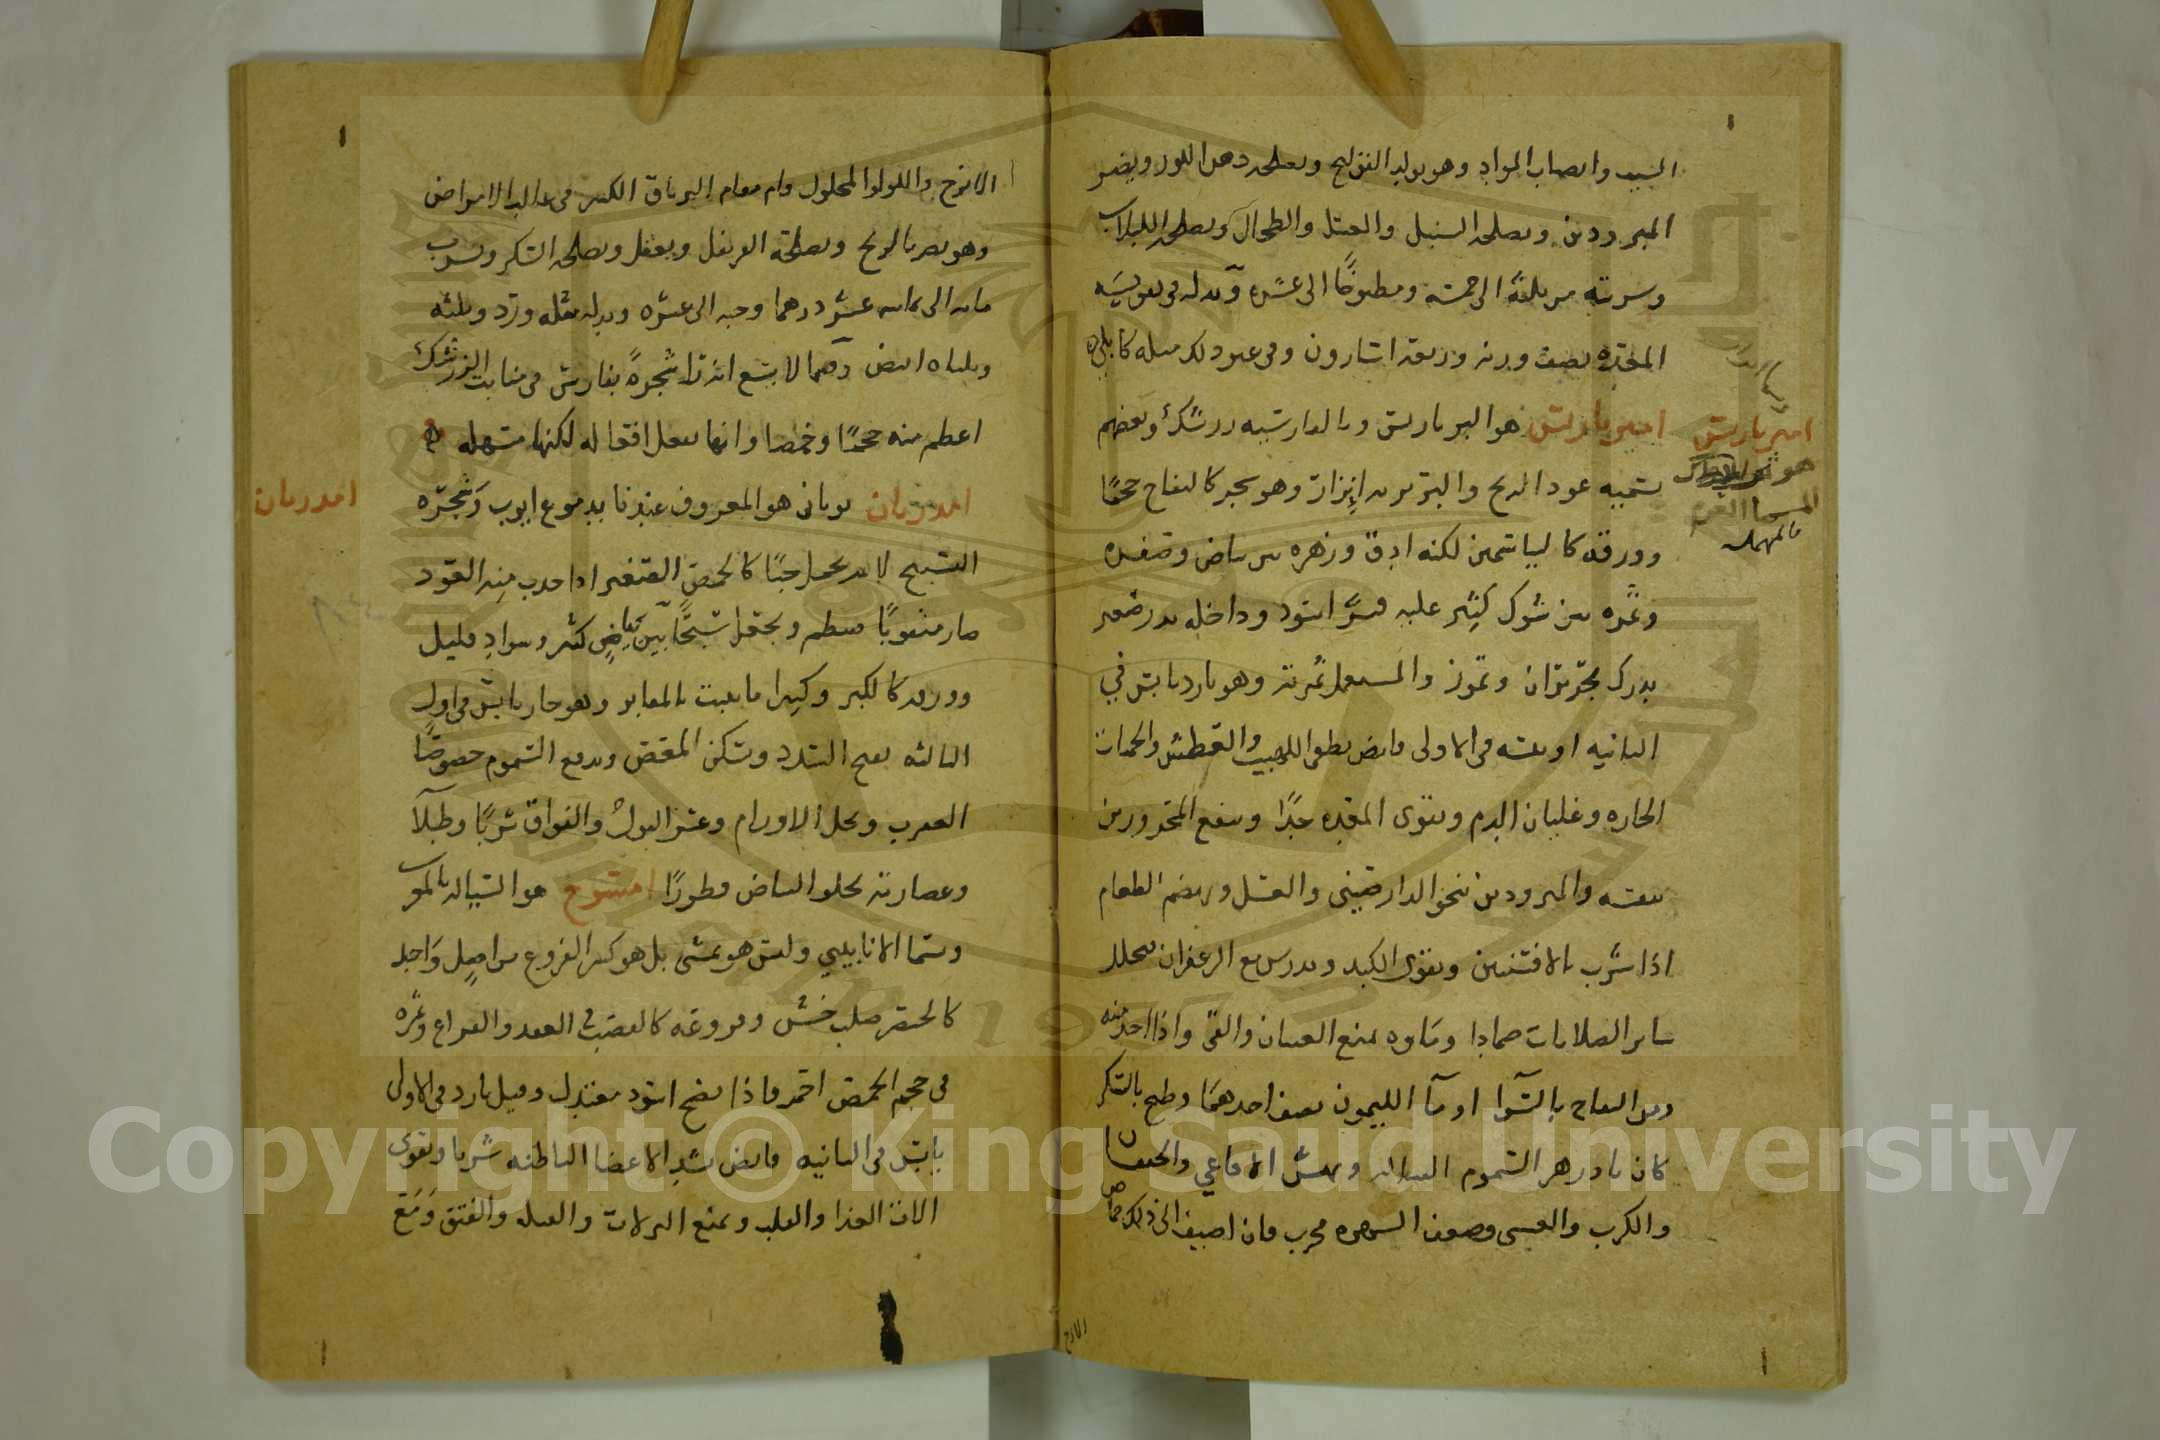 الشيب وانصباب المواد وهو يولد القولنج ويصلحه دهن اللوز ويضر
المبرودين ويصلحه السنبل والعسل والطحال ويصلحه اللبلاب
وشربته من ثلثة الى خمسة ومطبوخًا الى عشره وبدله في تقويه
المعده نصف وزنه وربعه اسارون وفي غير ذلك مثله كابلي
امير باريس هو البرباريس وبالفارسيه زرشك وبعضهم
يسميه عود الريح والبربريه ايزار وهو شجر كالتفاح حجمًا
وورقه كالياسمين لكنه ادق وزهره بين بياض وصفره
وثمره بين شوك كثير عليه قشر اسود وداخله بزر صغير
يدرك بحزيران وتموز والمستعمل ثمرته وهو بارد يابس في
الثانيه او يبسه في الاولى قابض يطفي اللهيب والعطش والحميات
الحاره وغليان الدم ويقوي المعده جدًا وينفع المحرورين
بنفسه والمبرودين بنحو الدارصيني والعسل ويهضم الطعام
اذا شرب بالافسنتين ويقوي الكبد ومع الزعفران يحلل
ساير الصلابات ضمادا وماوه يمنع الغثيان والقي واذا اخذ منه
ومن التفاح بالسوا او ما الليمون نصف احدهما وطبخ بالسكر
كان بادزهر السموم القتاله ونهش الافاعي والخفقان
والكرب والغشي وضعف الشهوه مجرب فان اضيف الى ذلك حماض
امير باريس
بالمهمله
الاترج
الاترج واللولو المحلول قام مقام الترياق الكبير في غالب الامراض
وهو يضر بالريح ويصلحه القرنفل ويعقل ويصلحه السكر وشرب
مايه الى ثمانيه عشر درهما وحبه الى عشره وبدله مثله ورد وثلثه
وثلثاه ابيض ومما لا يسع انه شجره بفارس في منابت الزرشك
اعظم منه حجمًا وحمضا وانها تفعل افعاله لكنها مسهله
امدريان يوناني هو المعروف عندنا بدموع ايوب وشجره
التسبيح لانه يحمل حبًا كالحمص الصغير اذا جذب منه العود
صار مثقوبًا فينظم ويجعل سبحًا بين بياض كثير وسواد قليل
وورقه كالكبر وكثيرا ما ينبت بالمقابر وهو حار يابس في اول
الثالثه يفتح السدد ويسكن المغص ويدفع السموم خصوصًا
العقرب ويحل الاورام وعسر البول والفواق شربًا وطلآ
وعصارته تجلو البياض قطورًا امسوخ هو السياله بالمغرب
وسما الانابيبي وليس هو بمشى بل هو كثير الفروع من اصل واحد
كالخنصر صلب خشن وفروعه كالقضب في العقد والفراع وثمره
في حجم الحمص احمر فاذا نضج اسود معتدل وقيل بارد في الاولى
يابس في الثانيه قابض يشد الاعضا الباطنه شربا ويقوي
الات الغذا والقلب ويمنع النزلات والقيله والفتق ومع
امدريان
Copyright © King Saud University